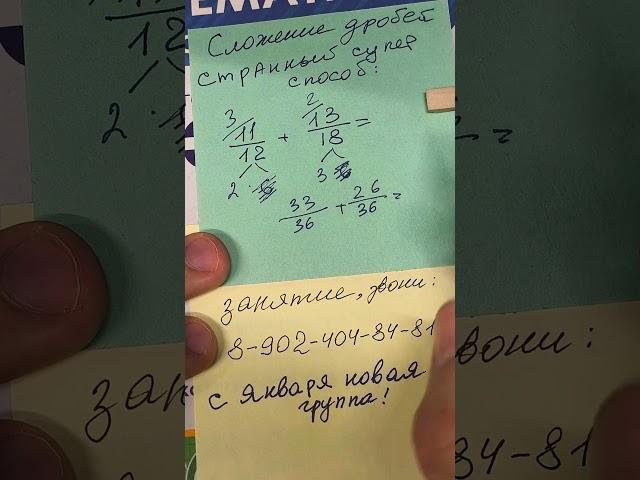 ЕМА
Сложение дробей
странный супер
способ:
3/11/12 + 2/13/18 =
2·6 3·6
33/36 + 26/36 =
занятие, звони:
8-902-404-84-81
с января новая
группа!